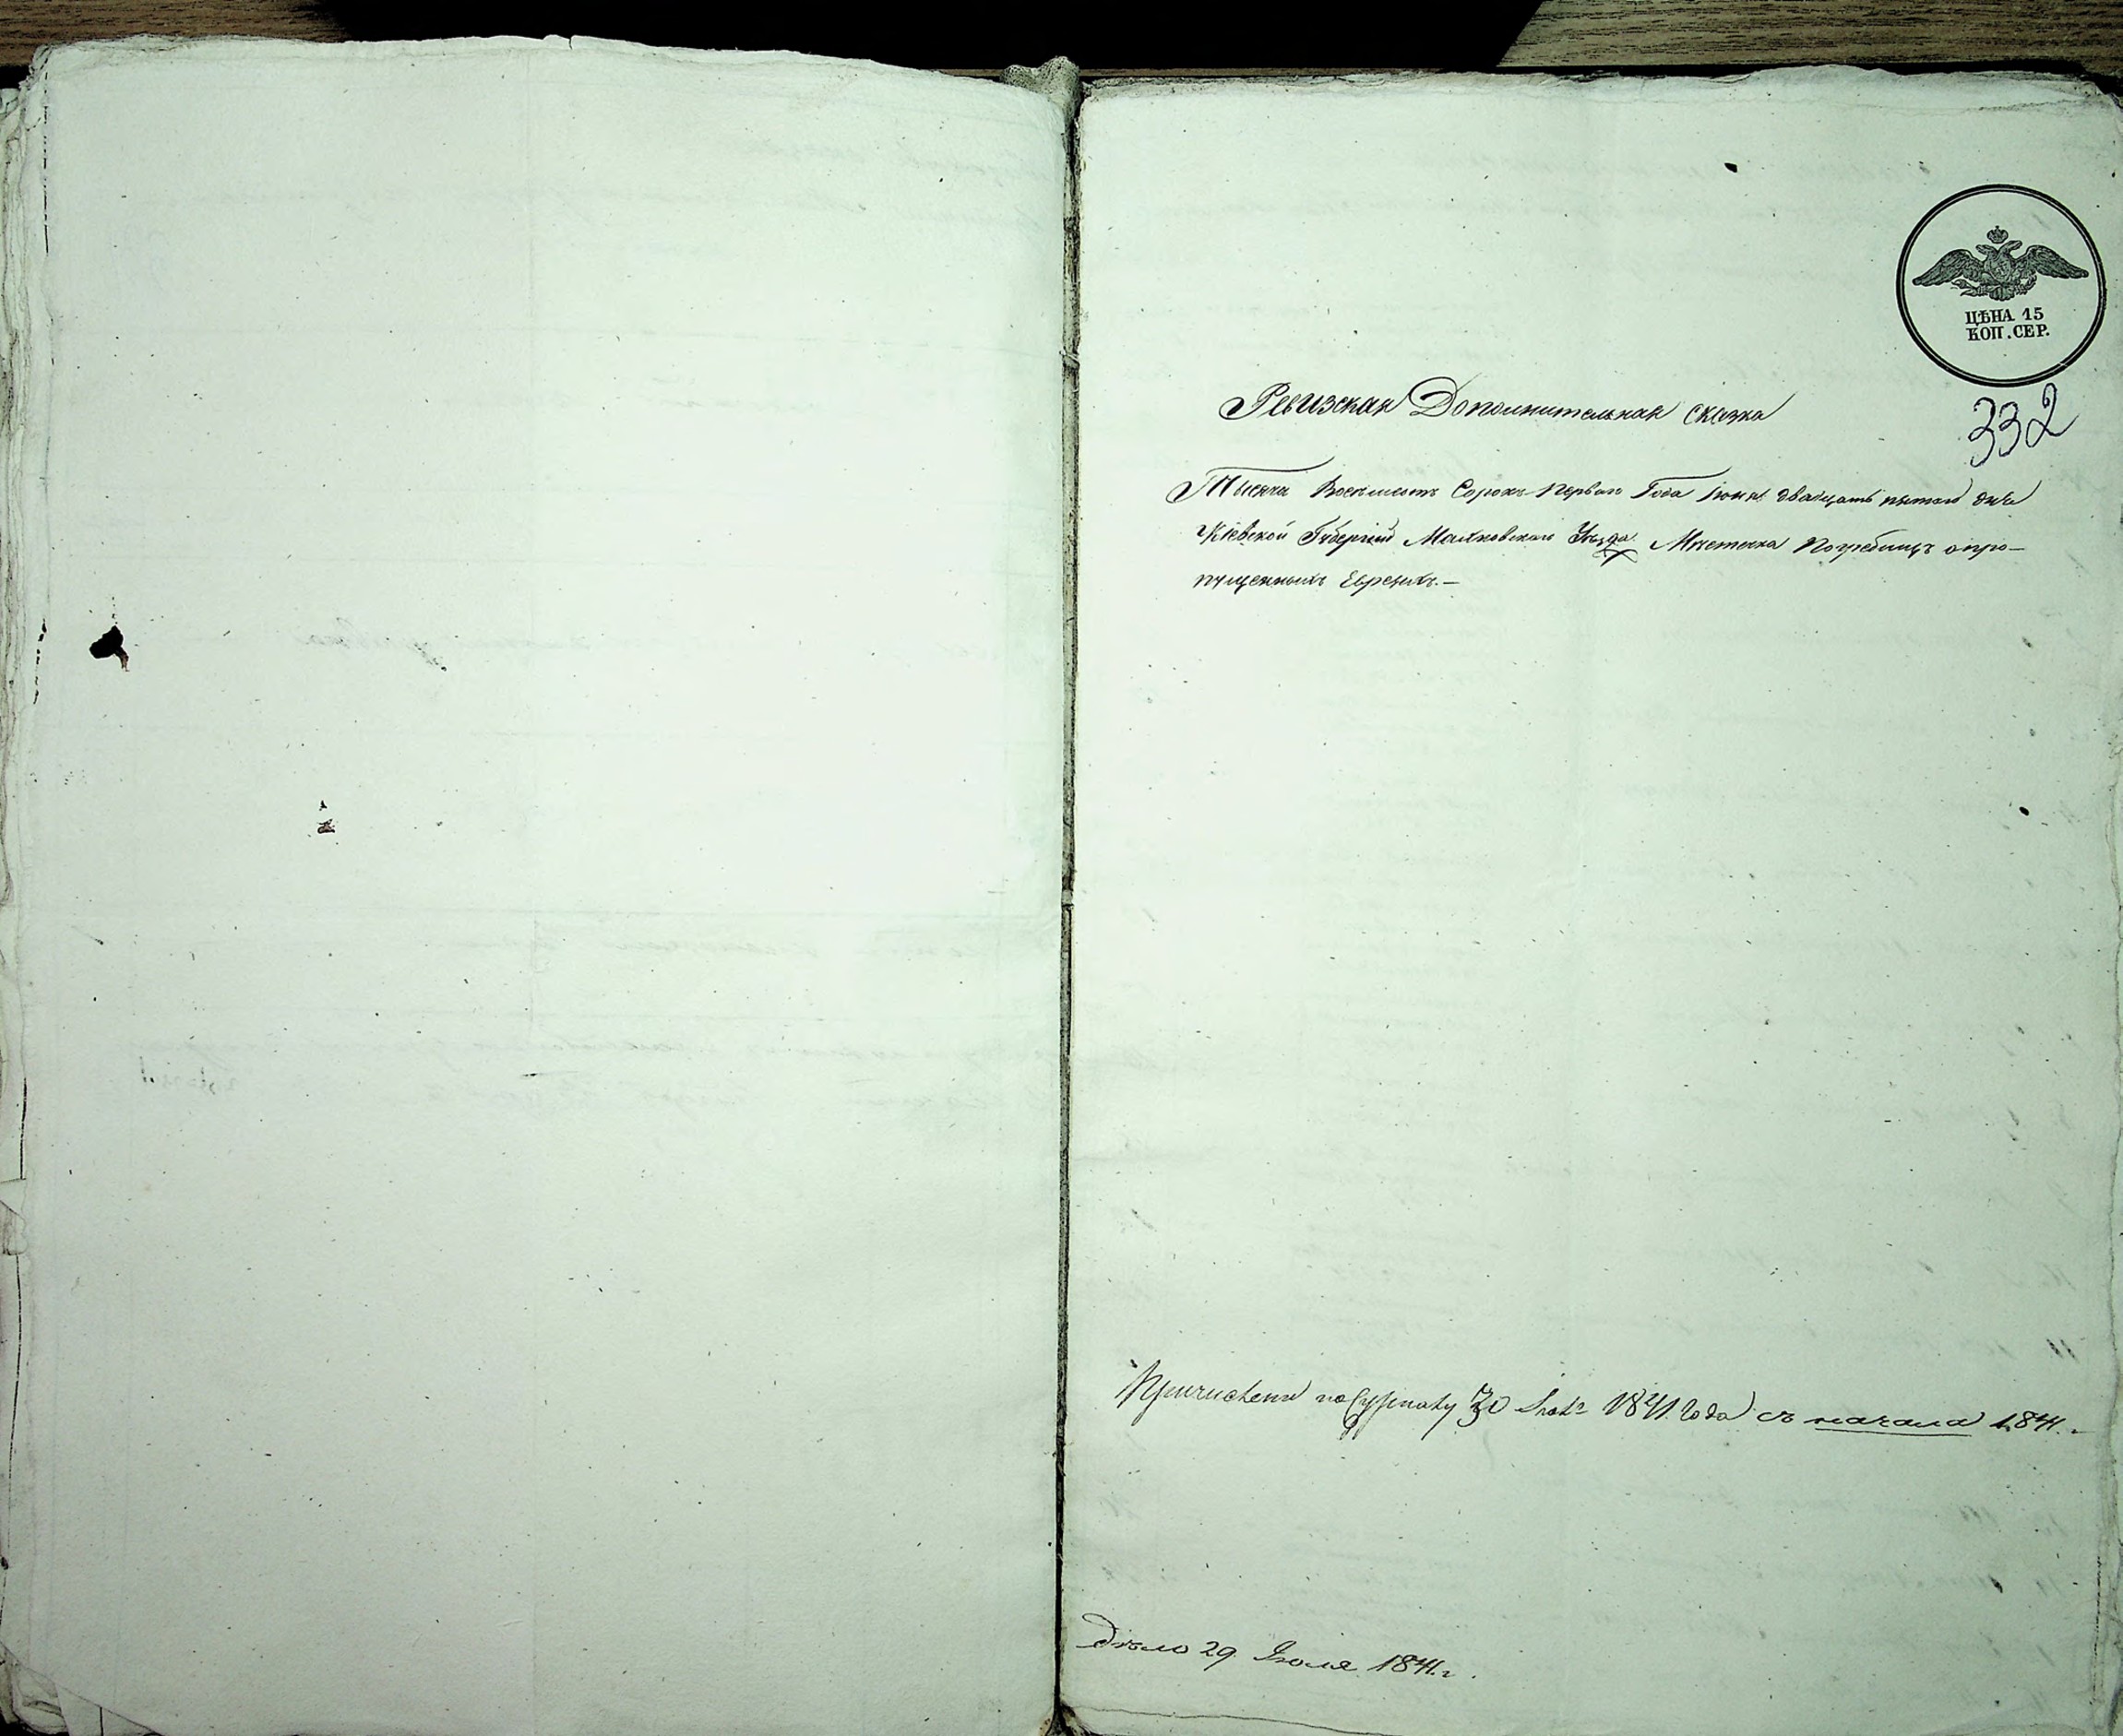 ЦѢНА 15
КОП. СЕР.
332
Ревизская Дополнительная сказка
Тысяча Восемьсотъ Сорокъ Перваго Года Іюня двадцать пятаго дня
Кіевской Губерніи Махновскаго Уѣзда Мѣстечка Погребищъ о про-
пущенныхъ Евреяхъ.—
Причислены по 30 1841. года съ начала 1841.
Дѣло 29 Іюля 1841.г.